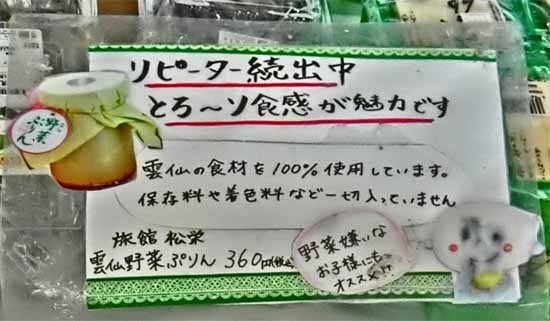 リピーター続出中
とろ～り食感が魅力です
野菜
ぷりん
雲仙の食材を100%使用しています。
保存料や着色料など一切入っていません
旅館 松栄
雲仙野菜ぷりん 360円(税込)
野菜嫌いな
お子様にも
オススメ!!